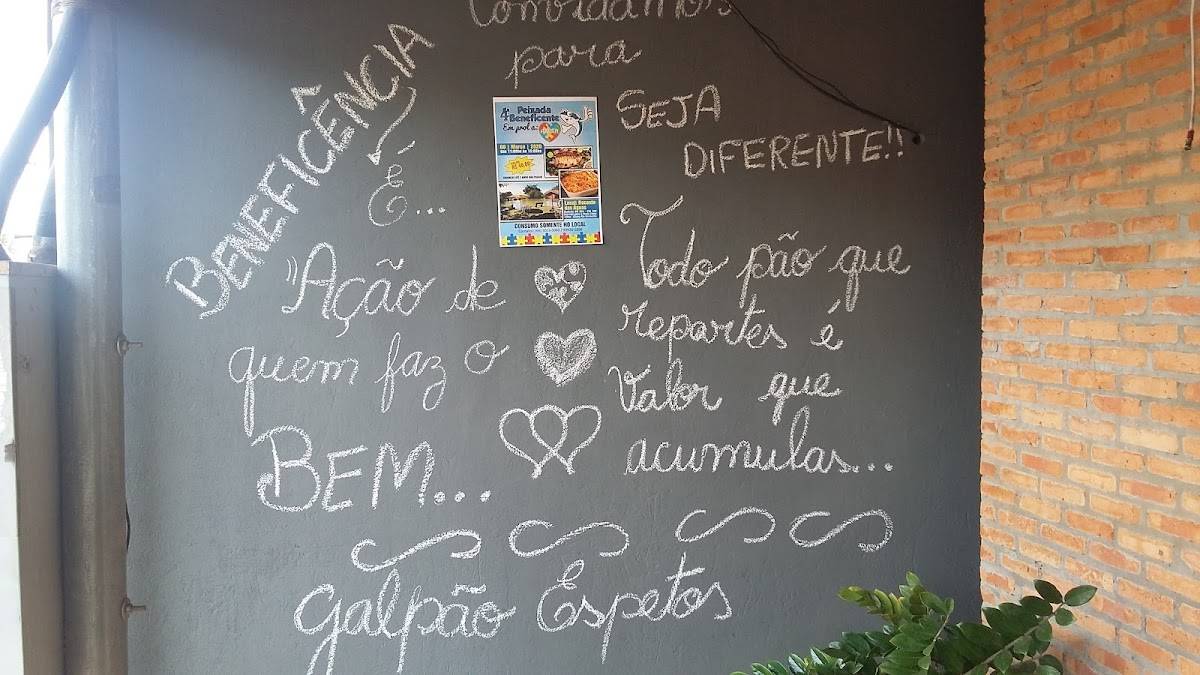 Convidamos
para
BENEFICÊNCIA
É...
"Ação de
quem faz o
BEM...
4ª Peixada
Beneficente
Em prol a:
CONSUMO SOMENTE NO LOCAL
SEJA
DIFERENTE!!
Todo pão que
repartes é
Valor que
acumulas...
galpão Espetos